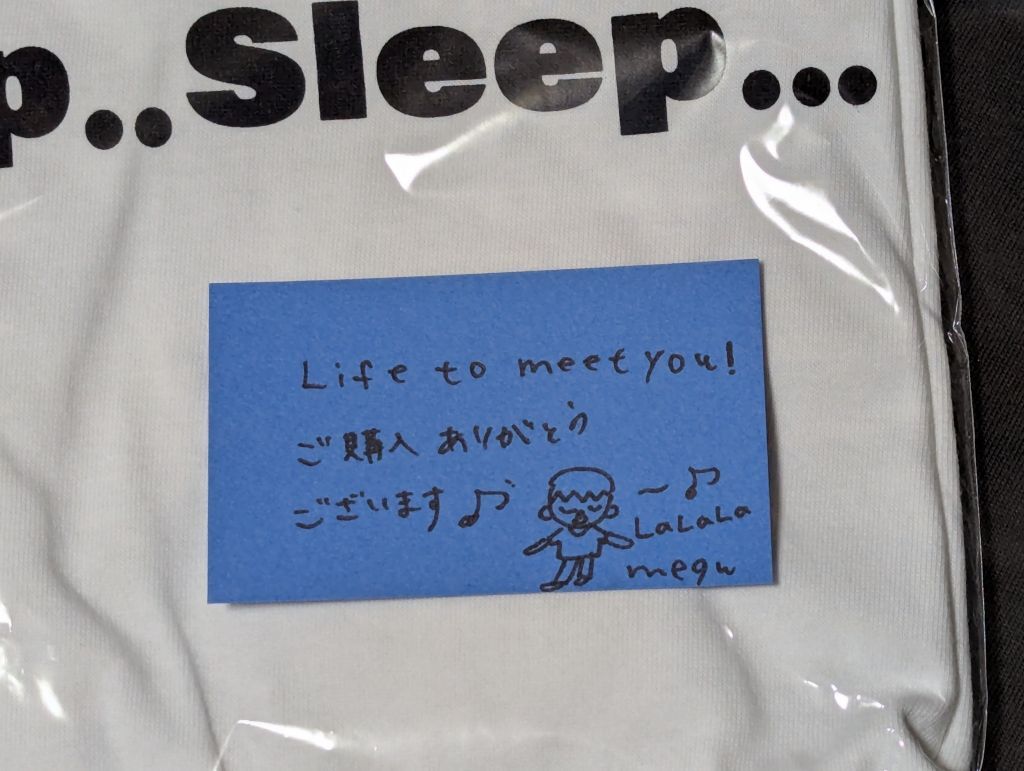 p..Sleep...
Life to meet you!
ご購入 ありがとう
ございます♪
～♪
LaLaLa
megu